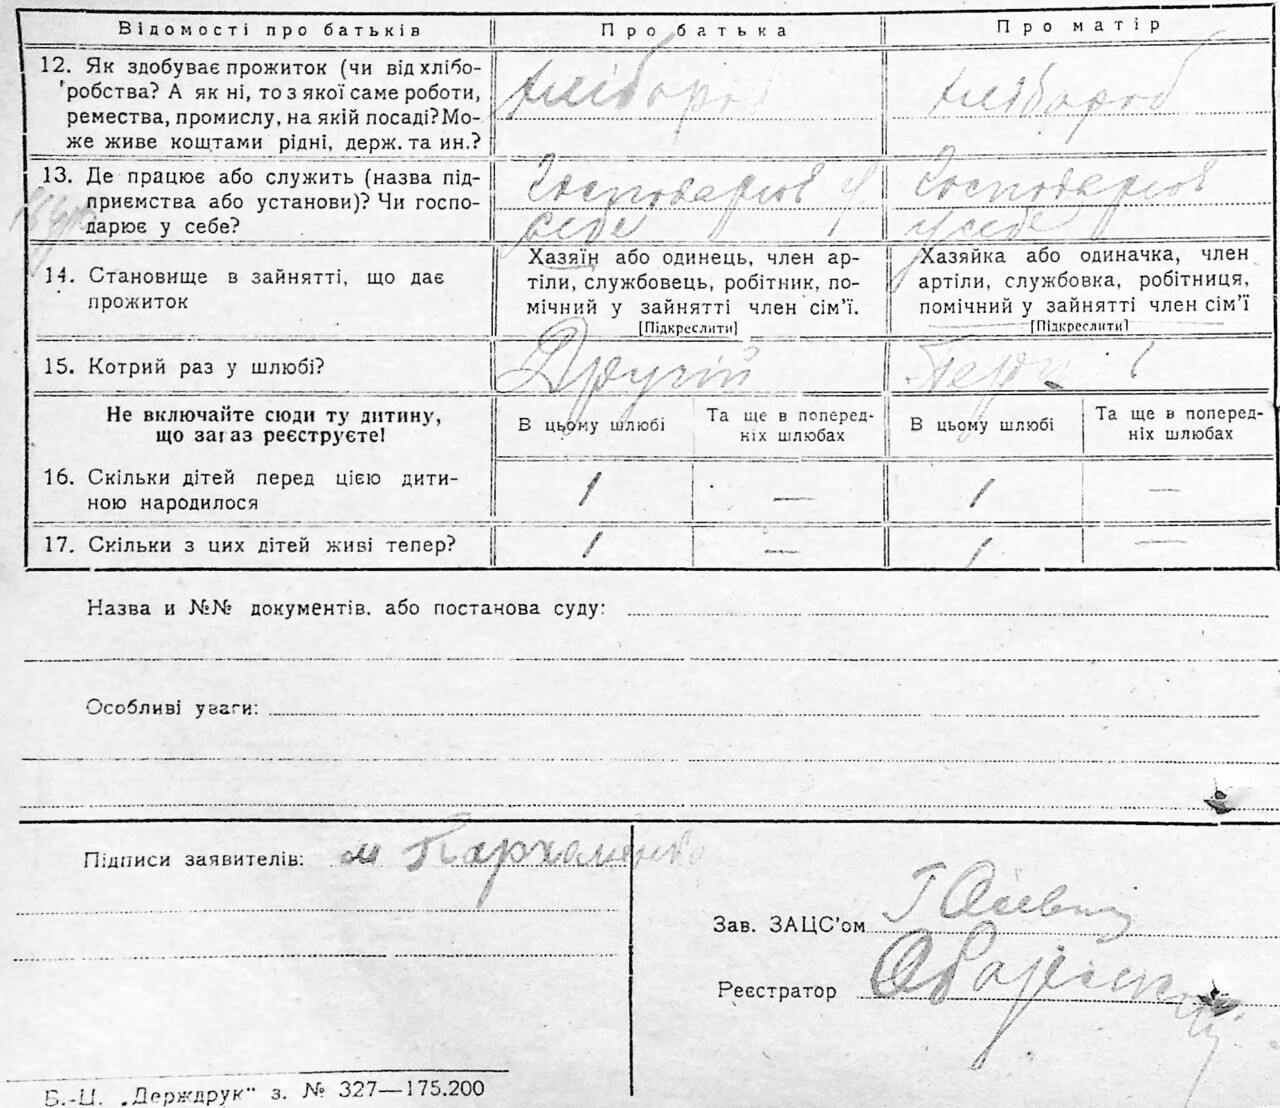 Відомості про батьків Про батька Про матір
12. Як здобуває прожиток (чи від хлібо-
робства? А як ні, то з якої саме роботи,
ремества, промислу, на якій посаді? Мо-
же живе коштами рідні, держ. та ин.?
хлібороб хлібороб
13. Де працює або служить (назва під-
приємства або установи)? Чи госпо-
дарює у себе?
Господарює у
себе
Господарює
у себе
14. Становище в зайнятті, що дає
прожиток
Хазяїн або одинець, член ар-
тіли, службовець, робітник, по-
мічний у зайнятті член сім'ї.
[Підкреслити]
Хазяйка або одиначка, член
артіли, службовка, робітниця,
помічний у зайнятті член сім'ї
[Підкреслити]
15. Котрий раз у шлюбі? Другій
Не включайте сюди ту дитину,
що зараз реєструєте!
В цьому шлюбі
Та ще в поперед-
ніх шлюбах
В цьому шлюбі
Та ще в поперед-
ніх шлюбах
16. Скільки дітей перед цією дити-
ною народилося
1 — 1 —
17. Скільки з цих дітей живі тепер? 1 — 1 —
Назва и №№ документів. або постанова суду:
Особливі уваги:
Підписи заявителів: м Пархоменко
Зав. ЗАЦС'ом
Реєстратор
Б.-Ц. „Держдрук" з. № 327—175.200